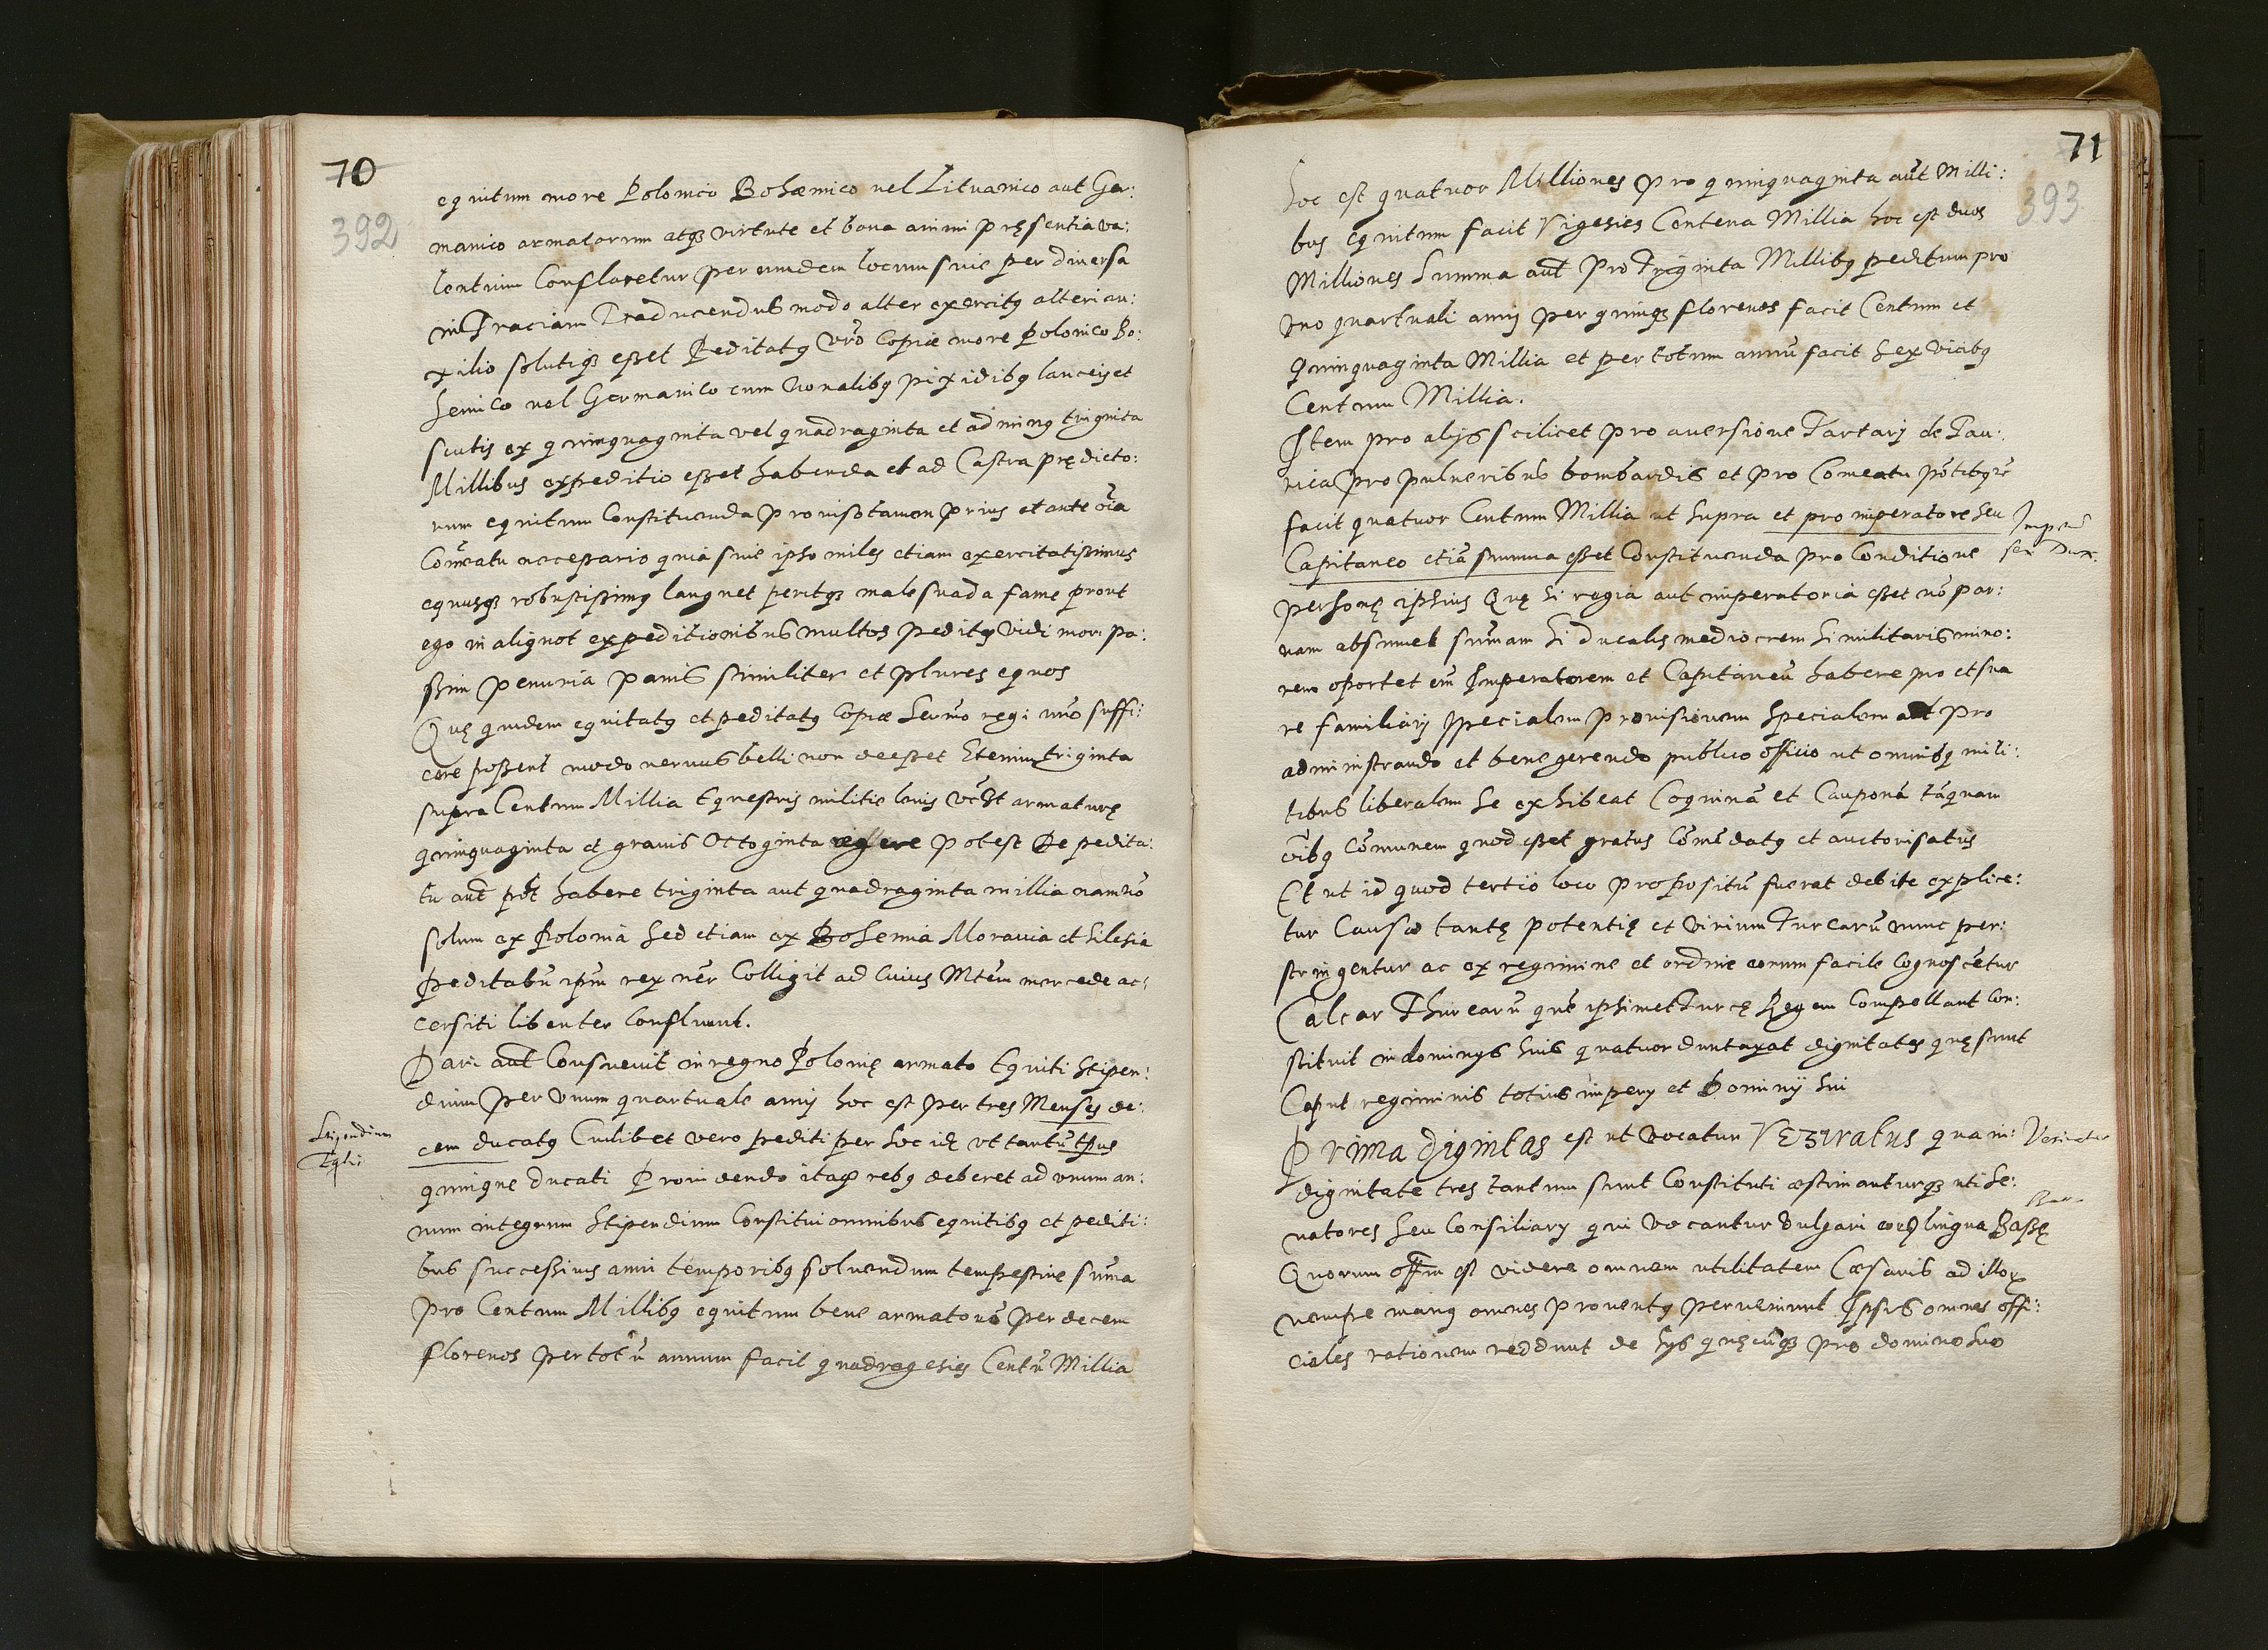 70
392
equitum more Polonico Bohæmico uel Lituanico aut Ger:
manico armatorum atqз virtute et bona animi pręsentia va:
lentium Conflaretur per eundem locum siue per diuersa
in Traciam Traducendus modo alter exercitꝯ alteri au:
xilio solutiqз eßet Peditatꝯ vr̃o Copiæ more Polonico Bo:
hemico uel Germanico cum Noualibꝯ pixidibꝯ lanceis et
scutis ex quinquaginta vel quadraginta et ad minꝯ triginta
Millibus expeditio eßet habenda et ad Castra prędicto:
rum equitum Constituenda prouiso tamen prius et ante oĩa
Com̃eatu neceßario quia siue ipso miles etiam exercitatißimus
equusqз robustißimꝯ languet peritqз male suada fame prout
ego in aliquot expeditionibus multos peditꝯ vidi mori pa:
ßim penuria panis similiter et plures equos
Quę quidem equitatꝯ et peditatꝯ Copiæ Seruo regi uno suffi:
cere poßent modo neruus belli non deeßet Etenim triginta
supra Centum Millia Equestris militie leuis armaturę
quinquaginta et grauis Octoginta egere potest De pedita:
tu aut̃ põt habere triginta aut quadraginta millia nam nõ
solum ex Polonia sed etiam ex Bohemia Morauia et Silesia
peditatũ ip̃m rex nr̃ Colligit ad Cuius Mtem mercede ac:
cersiti libenter Confluunt.
Dari aut̃ Consueuit in regno Polonię armato Equiti stipen:
dium per vnum quartuale anni hoc est per tres Menses de:
cem ducatꝯ Cuilibet vero pediti per hoc idę vt tantũ tp̃us
Stipendium
Eqtis
quinque Ducati Prouidendo itaqз rebꝯ deberet ad vnum an:
num integrum Stipendium Constitui omnibus equitibꝯ et pediti:
bus succeßiuis anni temporibꝯ soluendum tempestiue sum̃a
pro Centum Millibꝯ equitum bene armatorũ per decem
florenos per totũ annum facit quadragesies Centũ Millia
71
393
hoc est quatuor Milliones pro quinquaginta aut̃ Milli:
bus equitum facit Vigesies Centena Millia hoc est duos
Milliones Summa aut̃ Pro Triginta Millibꝯ peditum pro
vno quartuali anni per quinqз florenos facit Centum et
Quinquaginta Millia et per totum annũ facit sex vicibꝯ
Centum Millia.
Item pro alijs scilicet pro auersione Tartari de Tau:
rica pro pulueribus bombardis et pro Comeatu põtibꝯqзe
facit quatuor Centum Millia ut supra et pro imperatore seu
Capitaneo etiã summa eßet Constituenda pro Conditione
Imptor
seu Dux.
personę ipsius Quę si regia aut imperatoria eßet nõ par:
uam absumet sum̃am si Ducalis mediocrem si militaris mino:
rem oportet em̃ Imperatorem et Capitaneũ habere pro et sua
re familiari specialem prouisionem specialem aut̃ pro
administrando et bene gerendo publico officio ut omnibꝯ mili:
tibus liberalem se exhibeat Coquinã et Cauponã tãquam
oĩbꝯ Com̃unem quod eßet gratus Com̃edatꝯ et auctorisatus
Et ut id quod tertio loco propositũ fuerat debite explice:
tur Causæ tantę potentię et virium Turcarũ nunc per:
stringentur ac ex regimine et ordine eorum facile Cognoscetur
Calcar Thurcarũ quẽ ipsimet Turcę Regem Compellant Con:
stituit in dominijs suis quatuor duntaxat dignitates quę sunt
Caput regiminis totius impery et Dominij sui
Prima Dignitas est ut vocatur Veziratus qua in:
Veziratus
dignitate tres tantum sunt Constituti æstimanturqз uti Se:
natores seu Consiliary qui vocantur vulgari eorꝝ lingua Baßę
Quorum offm̃ est videre omnem utilitatem Cæsaris ad illorꝝ
nempe manꝯ omnes prouentꝯ perueniunt Ipsis omnes offi:
ciales rationem reddunt de hijs quęcũqз pro domino suo